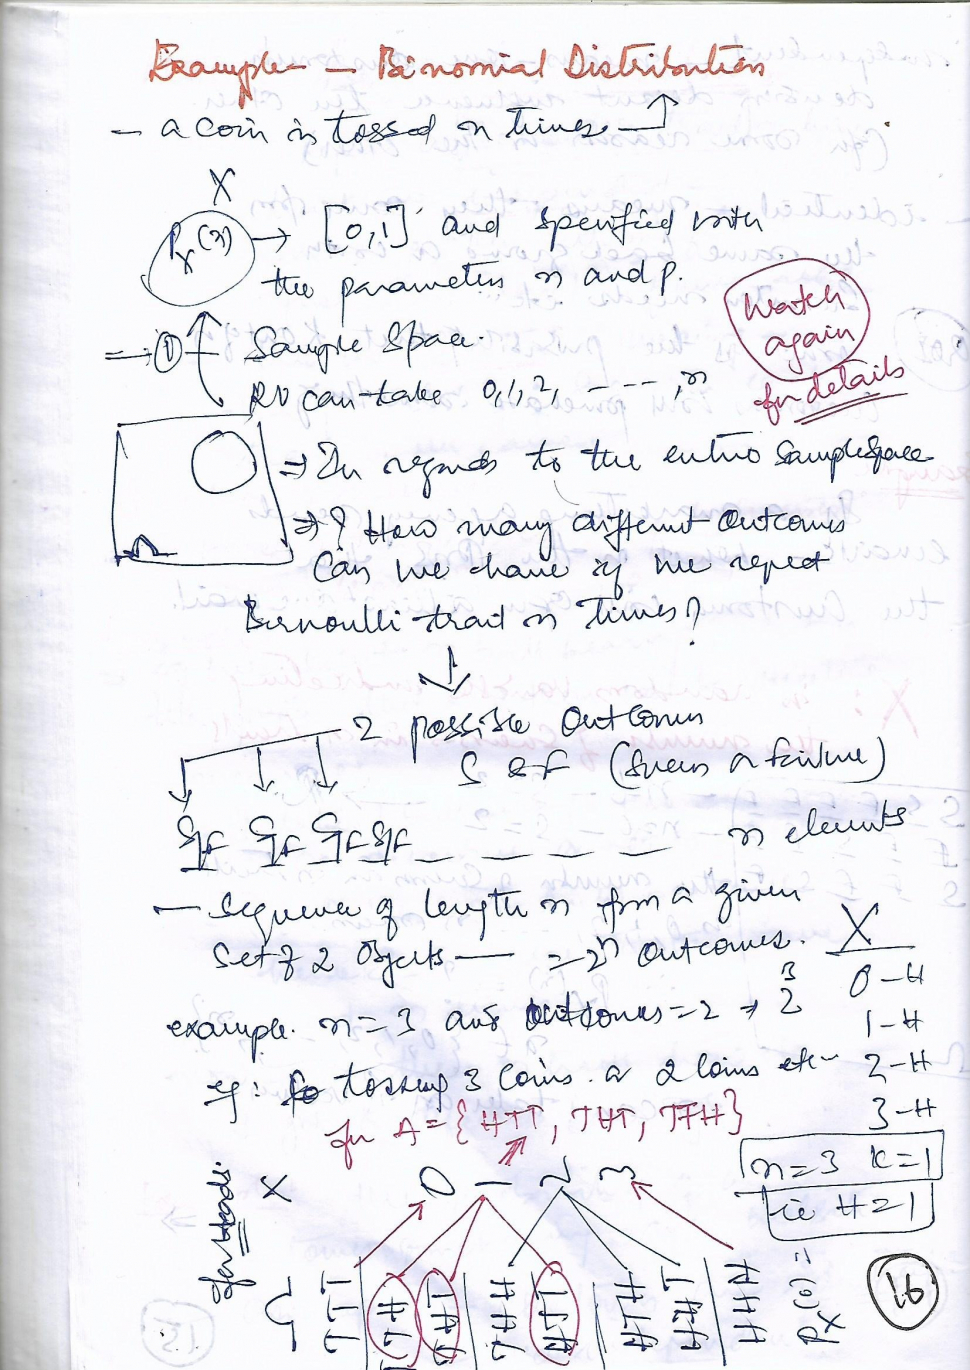 Example — Binomial Distribution
— a coin is tossed n times
X
Px(x) → [0,1] and specified with
the parameters n and p.
Watch
again
for details
① Sample Space.
RV can take 0,1,2, - - - - ,n
⇒ In regards to the entire Sample Space
Ω
⇒ ? How many different outcomes
Can we have if we repeat
Bernoulli trail n times?
2 possible outcomes
S or F (Success or failure)
S/F S/F S/F S/F _ _ _ _ _ n elements
— sequence of length n from a given
set of 2 objects — = 2ⁿ outcomes.
X
0-H
1-H
2-H
3-H
example. n=3 and outcomes=2 → 2³
eg: tossing 3 coins or 2 coins etc
for A = {HTT, THT, TTH}
n=3 k=1
ie H=1
for Heads.
X 0 1 2 3
Ω TTT TTH THT THH HTT HTH HHT HHH
Px(0) =
16